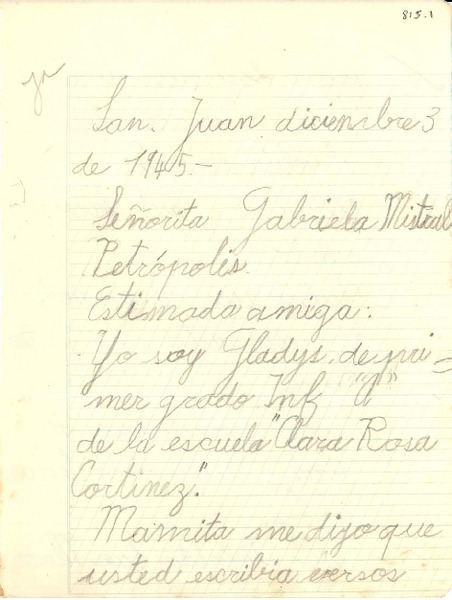 815.1
San. Juan diciembre 3
de 1945.-
Señorita Gabriela Mistral
Petrópolis.
Estimada amiga:
Yo soy Gladys, de pri-
mer grado Inf "A"
de la escuela "Clara Rosa
Cortinez."
Mamita me dijo que
usted escribia versos